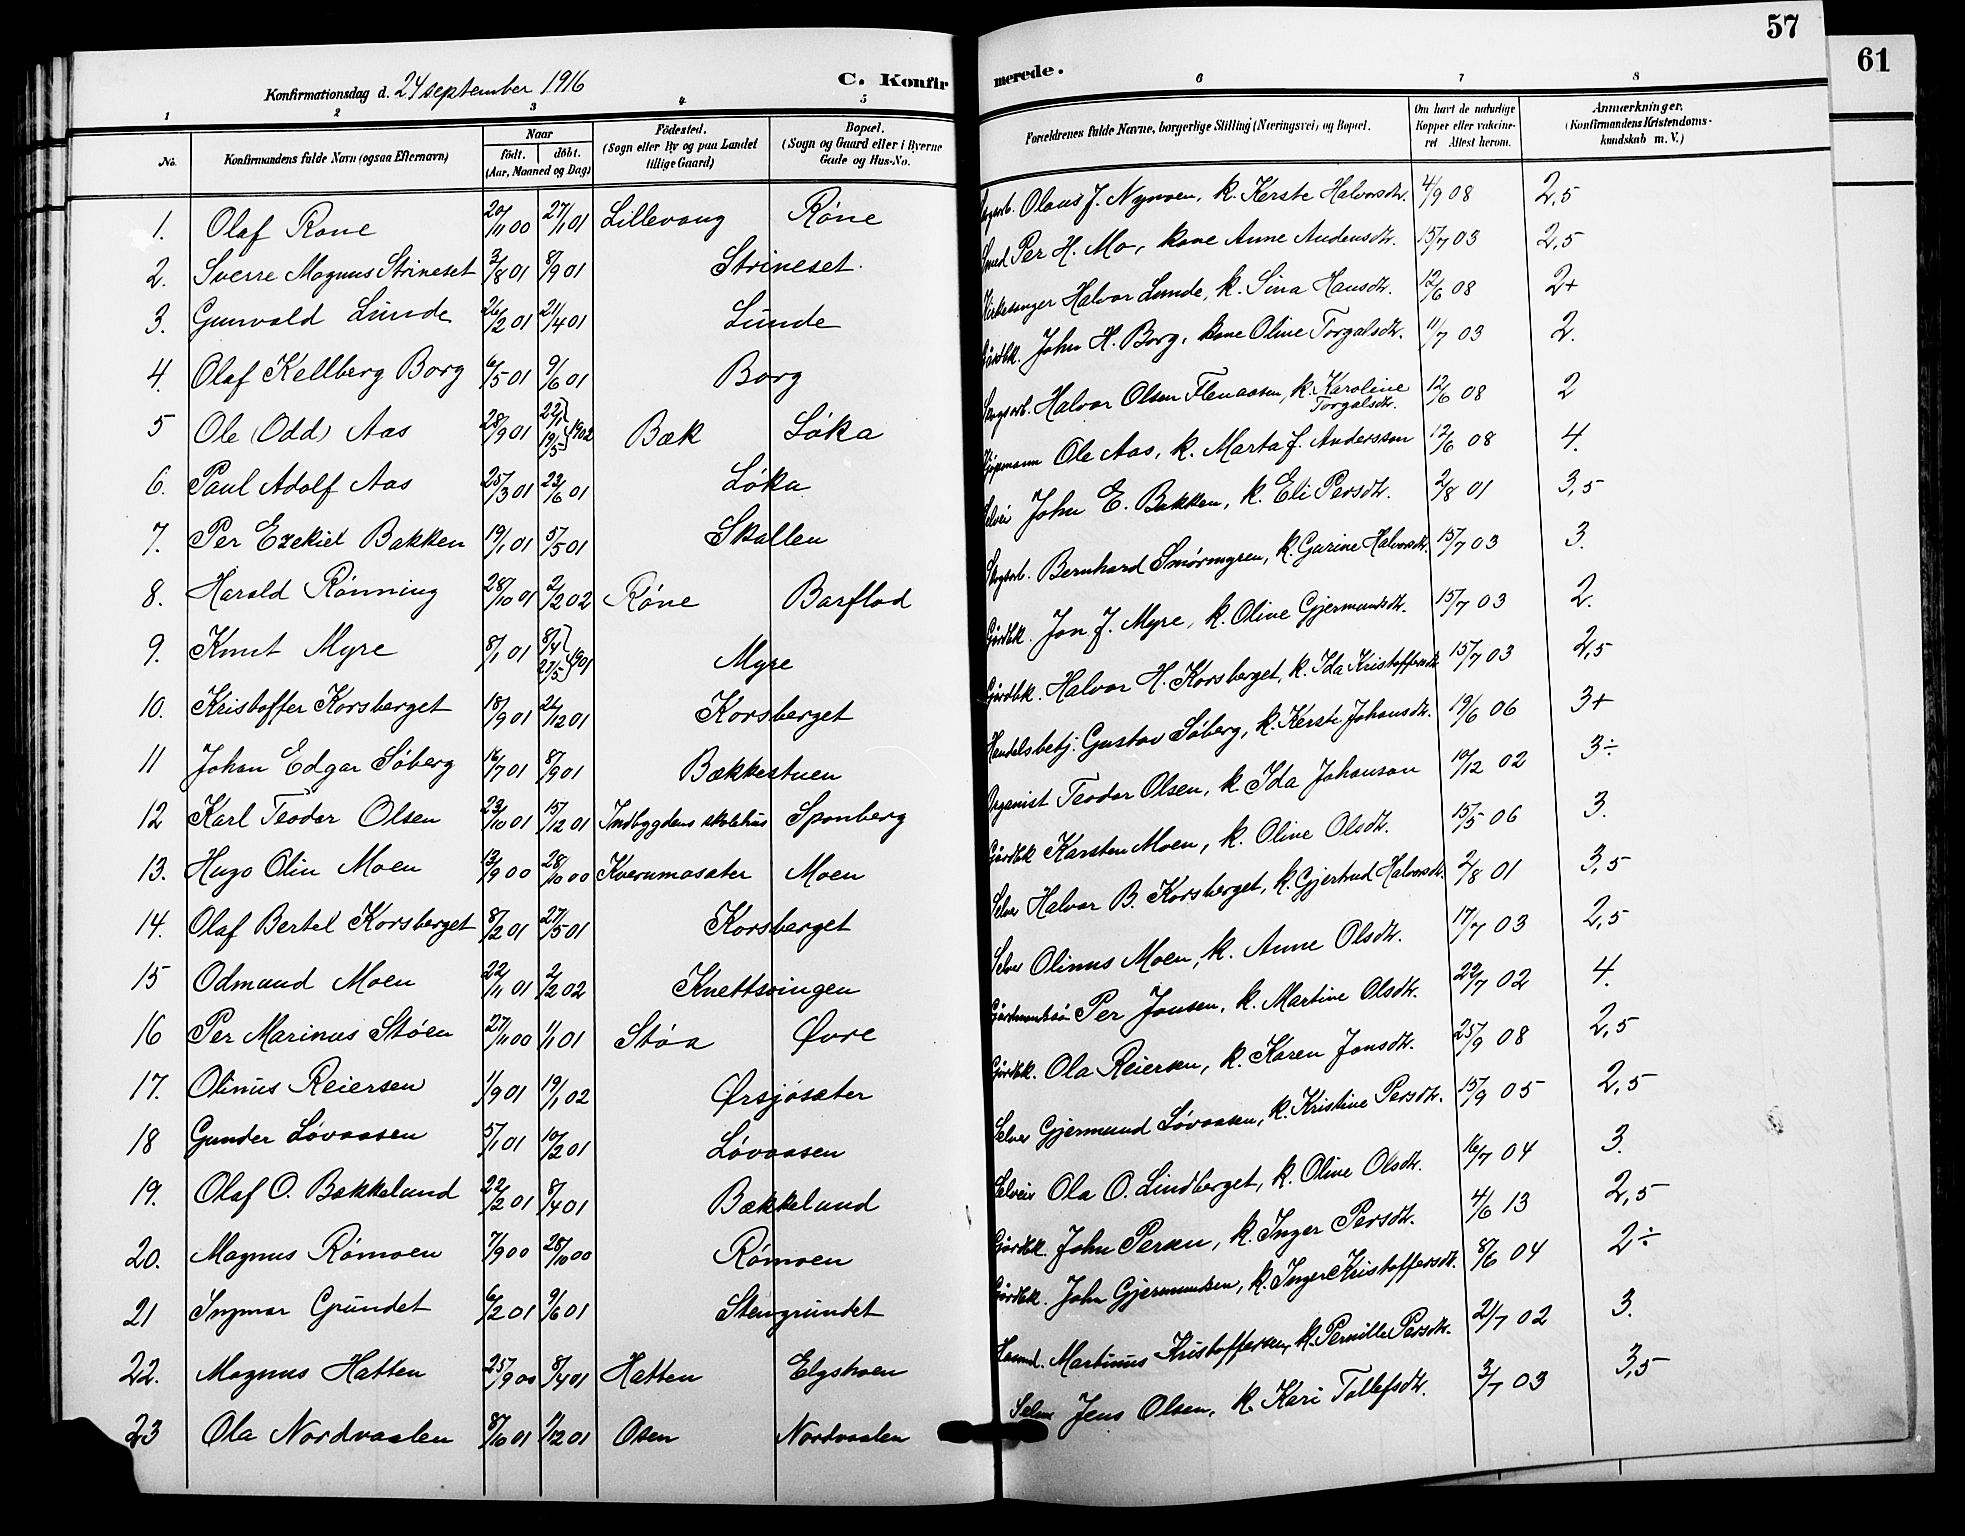 57
61
Konfirmationsdag d. 24 september 1916
C. Konfir
merede.
1 2 3 4 5 6 7 8
No. Konfirmandens fulde Navn (ogsaa Efternavn) Naar født. døbt. (Aar, Maaned og Dag) Fødested. (Sogn eller By og paa Landet tillige Gaard) Bopæl. (Sogn og Gaard eller i Byerne Gade og Hus-No. Forældrenes fulde Navne, borgerlige Stilling (Næringsvei) og Bopæl. Om havt de naturlige Kopper eller vakcineret Attest herom. Anmærkninger. (Konfirmandens Kristendomskundskab m. V.)
1. Olaf Rone 20/11 00 27/1 01 Lillevang Røne Olaus J. Nymoen, k. Kerste Halvorsdtr. 4/9 08 2,5
2. Sverre Magnus Strineset 3/8 01 8/9 01 Strineset. Smed Per H. Mo, kone Anne Andensdtr. 15/7 03 2,5
3. Gunvald Lunde 26/2 01 21/4 01 Lunde Kirkesanger Halvor Lunde, k. Sina Hansdtr. 12/6 08 2+
4. Olaf Kellberg Borg 6/5 01 9/6 01 Borg Gårdbk. John H. Borg, kone Oline Torgalsdtr. 11/7 03 2.
5 Ole (Odd) Aas 28/9 01 22/1 19/5 } 1902 Bæk Løka Halvor Olsen Flenaasen, k. Karoline Torgalsdtr. 12/6 08 2
6. Paul Adolf Aas 25/3 01 23/6 01 Løka Kjøpmann Ole Aas, k. Marta J. Andersson 12/6 08 4.
7. Per Ezekiel Bakken 19/1 01 5/5 01 Skallen Selvei John E. Bakken, k. Eli Persdtr. 2/8 01 3,5
8. Harald Rønning 28/10 01 2/2 02 Røne Barflod Bernhard Smørmyren, k. Garine Halvorsdtr. 15/7 03 3.
9. Knut Myre 8/1 01 8/4 27/5 } 1901 Myre Gårdbk. Jon J. Myre, k. Oline Gjermundsdtr. 15/7 03 2.
10. Kristoffer Korsberget 18/9 01 26/12 01 Korsberget Gårdbk. Halvor H. Korsberget, k. Ida Kristoffersdtr. 15/7 03 2,5
11 Johan Edgar Søberg 16/7 01 8/9 01 Bækkestuen Handelsbetj. Gustav Søberg, k. Kerste Johansdtr. 19/6 06 3+
12 Karl Teodor Olsen 23/10 01 15/12 01 Indbygdens skolehus Sponberg Organist Teodor Olsen, k. Ida Johanson 10/12 02 3÷
13. Hugo Olin Moen 13/9 00 28/10 00 Kvernmosæter Moen Gårdbk Karsten Moen, k. Oline Olsdtr. 15/5 06 3.
14. Olaf Bertel Korsberget 8/2 01 27/5 01 Korsberget Selvei Halvor B. Korsberget, k. Gjertrud Halvorsdtr. 2/8 01 3,5
15 Odmund Moen 22/11 01 2/2 02 Knettsvingen Selvei Olinus Moen, k. Anne Olsdtr. 17/7 03 2,5
16 Per Marinus Støen 27/11 00 1/1 01 Støa Øvre Per Jonsen, k. Martine Olsdtr. 22/7 02 4.
17. Olinus Reiersen 1/9 01 19/1 02 Ørsjøsæter Gårdbk. Ola Reiersen, k. Karen Jonsdtr. 25/9 08 2,5
18 Gunder Løvaasen 5/1 01 10/2 01 Løvaasen Selvei Gjermund Løvaasen, k. Kristine Persdtr. 15/9 05 2,5
19. Olaf O. Bækkelund 22/2 01 8/4 01 Bækkelund Selveier Ola O. Lindberget, k. Oline Olsdtr. 16/7 04 3.
20. Magnus Rømoen 7/9 00 28/10 00 Rømoen Gårdbk. John Persen, k. Inger Persdtr. 4/6 13 2,5
21 Ingmar Grundet 6/2 01 9/6 01 Stengrundet Gårdbk. John Gjermundsen, k. Inger Kristoffersdtr. 8/6 04 2÷
22. Magnus Hatten 25/9 00 8/4 01 Hatten Elgshoen Martinus Kristoffersen, k. Pernille Persdtr. 21/7 02 3.
23 Ola Nordvaalen 8/10 01 1/12 01 Osen Nordvaalen Selvei Jens Olsen, k. Kari Tollefsdtr. 3/7 03 3,5